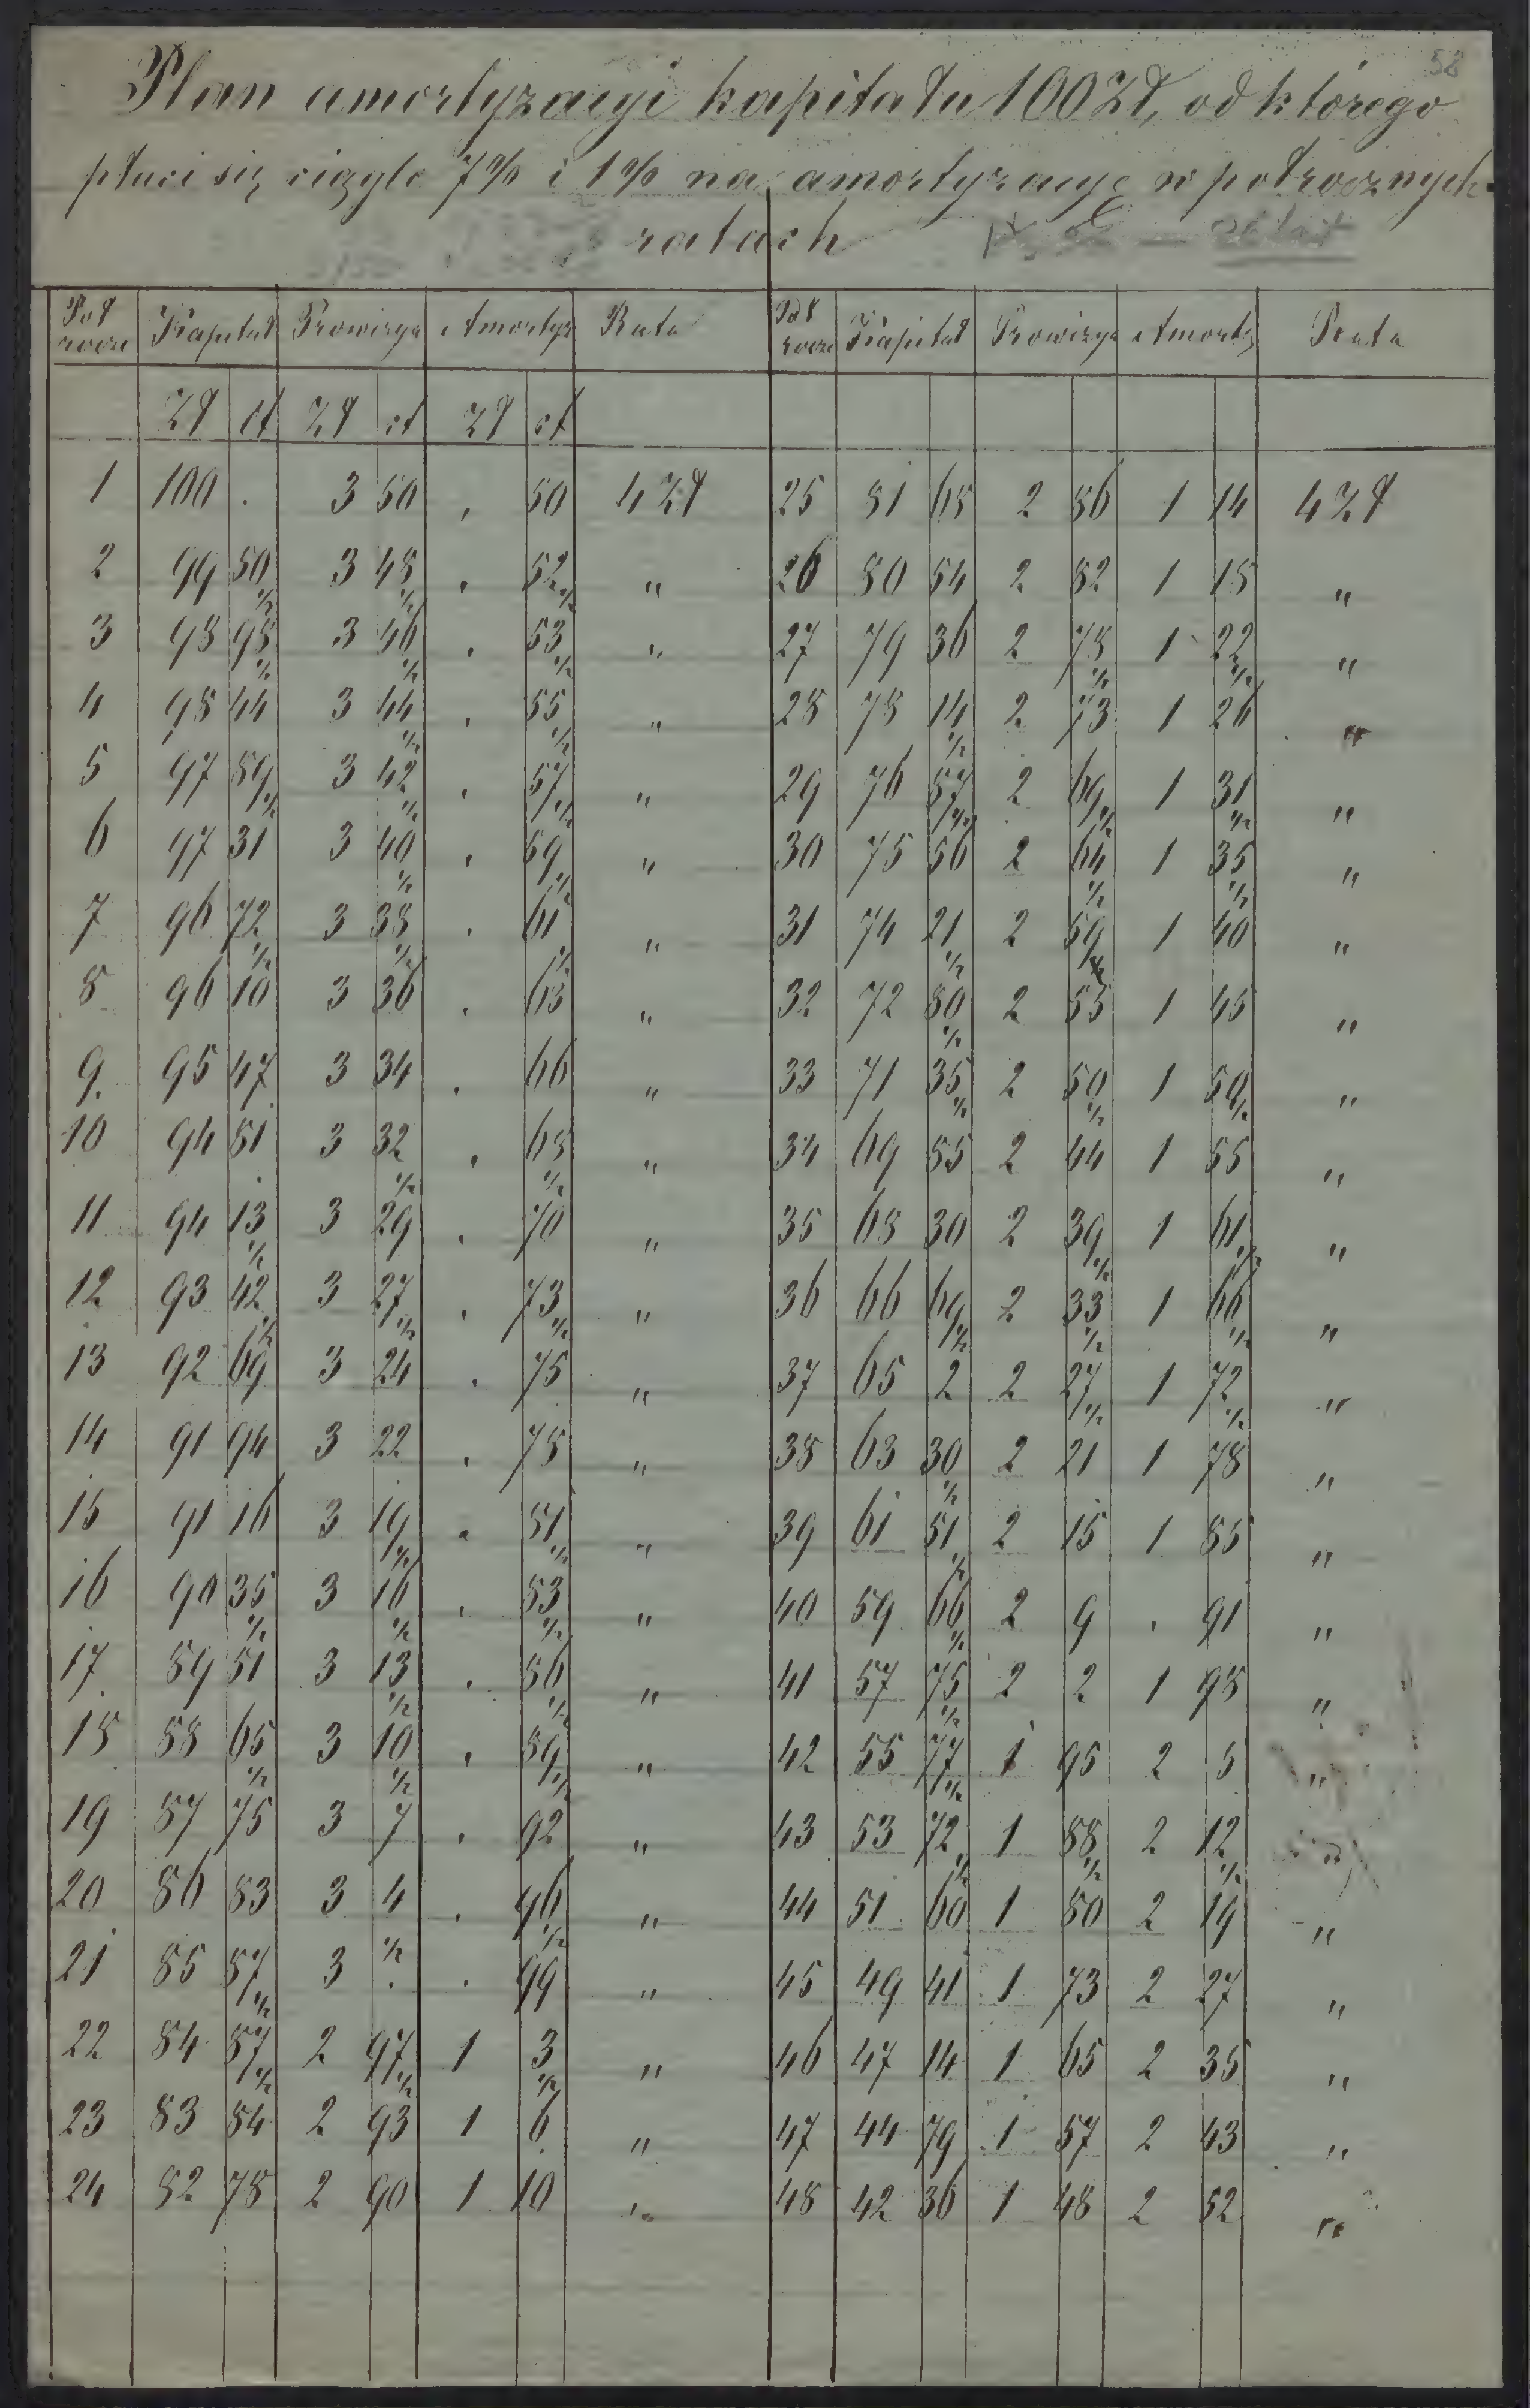 58
Plan amortyzacyi kapitału 100 Zł, od którego
płaci się ciągle 7% i 1% na amortyzacyę w półrocznych
ratach
Pół rocze Kapitał Prowizya Amortyz Rata Pół rocze Kapitał Prowizya Amorty Rata
Zł ct Zł ct Zł ct
1 100 . 3 50 . 50 4 Zł 25 81 68 2 86 1 14 4 Zł
2 99 50 1/2 3 48 1/2 . 52 1/2 " 26 80 54 2 82 1 18 "
3 98 98 1/2 3 46 1/2 . 53 1/2 " 27 79 36 2 78 1/2 1 22 1/2 "
4 98 44 3 44 1/2 . 55 1/2 " 28 78 14 1/2 2 73 1 26 "
5 97 89 1/2 3 42 1/2 . 57 1/2 " 29 76 87 1/2 2 69 1/2 1 31 1/2 "
6 97 31 3 40 1/2 . 59 1/2 " 30 75 56 2 64 1/2 1 35 1/2 "
7 96 72 1/2 3 38 1/2 . 61 1/2 " 31 74 21 1/2 2 59 1/2 1 40 "
8 96 10 3 36 . 63 " 32 72 80 1/2 2 55 1 45 "
9 95 47 3 34 . 66 " 33 71 35 1/2 2 50 1/2 1 50 1/2 "
10 94 81 3 32 1/2 . 68 1/2 " 34 69 85 2 44 1 55 "
11 94 13 1/2 3 29 . 70 " 35 68 30 2 39 1/2 1 61 1/2 "
12 93 42 1/2 3 27 1/2 . 73 1/2 " 36 66 69 1/2 2 33 1/2 1 66 1/2 "
13 92 69 3 24 . 75 " 37 65 2 2 27 1/2 1 72 1/2 "
14 91 94 3 22 . 78 " 38 63 30 1/2 2 21 1 78 "
15 91 16 3 19 1/2 . 81 1/2 " 39 61 51 1/2 2 15 1 85 "
16 90 35 1/2 3 16 1/2 . 83 1/2 " 40 59 66 1/2 2 9 . 91 "
17 89 51 3 13 1/2 . 86 1/2 " 41 57 75 1/2 2 2 1 98 "
18 88 65 1/2 3 10 1/2 . 89 1/2 " 42 55 77 1/2 1 95 2 5 "
19 87 75 3 7 . 92 " 43 53 72 1/2 1 88 1/2 2 12 1/2 "
20 86 83 3 4 . 96 1/2 " 44 51 60 1 80 2 19 "
21 85 87 1/2 3 1/2 . . 99 " 45 49 41 1 73 2 27 "
22 84 87 1/2 2 97 1/2 1 3 1/2 " 46 47 14 1 65 2 35 "
23 83 84 2 93 1 6 " 47 44 79 1 57 2 43 "
24 82 78 2 90 1 10 " 48 42 36 1 48 2 52 "